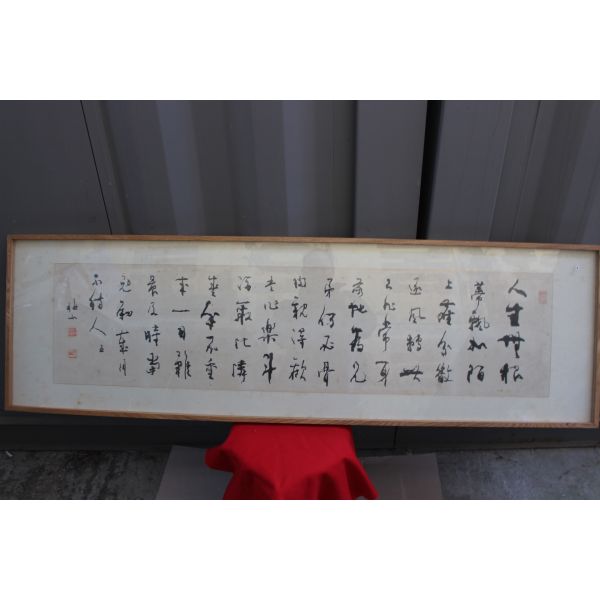 人生無根
蒂飄如陌
上塵分散
逐風轉此
已非常身
落地為兄
弟何必骨
肉親得歡
當作樂斗
酒聚比隣
盛年不重
来一日難
晨及時當
勉勵歲月
不待人